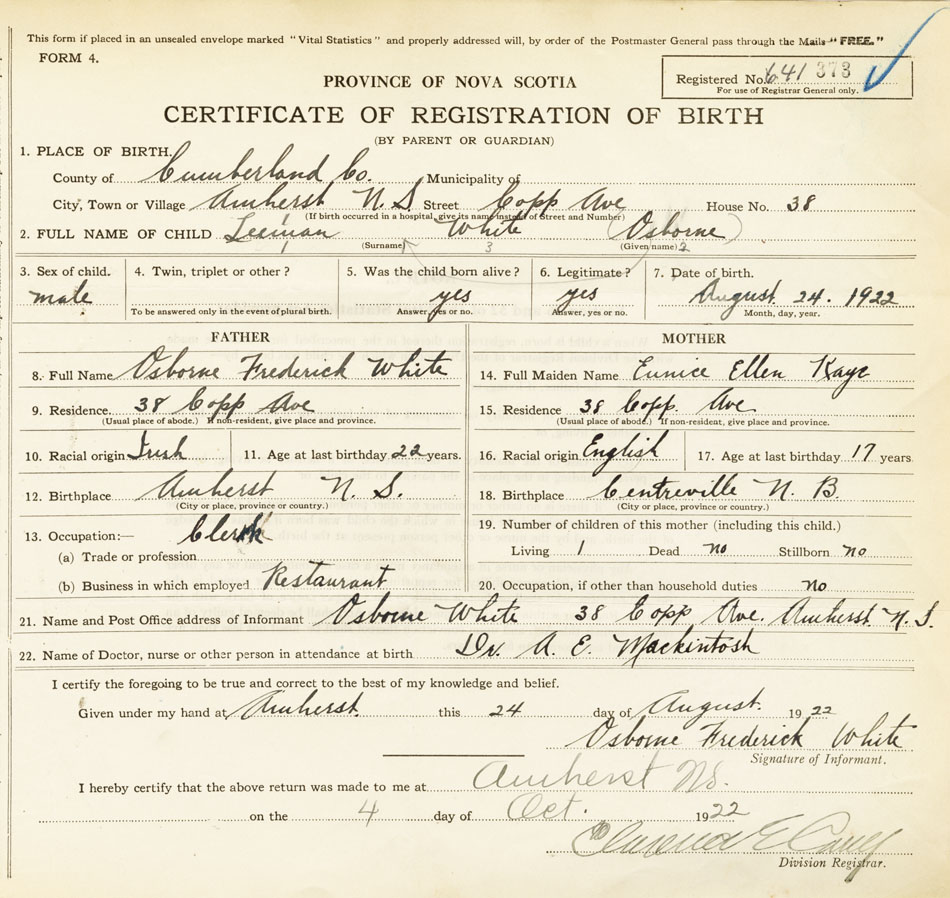 This form if placed in an unsealed envelope marked "Vital Statistics" and properly addressed will, by order of the Postmaster General pass through the Mails "FREE."
FORM 4.
Registered No. 641 373
For use of Registrar General only.
PROVINCE OF NOVA SCOTIA
CERTIFICATE OF REGISTRATION OF BIRTH
(BY PARENT OR GUARDIAN)
1. PLACE OF BIRTH.
County of Cumberland Co. Municipality of
City, Town or Village Amherst N. S. Street Copp Ave House No. 38
(If birth occurred in a hospital, give its name instead of Street and Number)
2. FULL NAME OF CHILD Leeman White (Osborne)
1 (Surname) 3 (Given name) 2
3. Sex of child. 4. Twin, triplet or other? 5. Was the child born alive? 6. Legitimate? 7. Date of birth.
male yes yes August 24. 1922
To be answered only in the event of plural birth. Answer, yes or no. Answer, yes or no. Month, day, year.
FATHER MOTHER
8. Full Name Osborne Frederick White 14. Full Maiden Name Eunice Ellen Kaye
9. Residence. 38 Copp Ave 15. Residence 38 Copp. Ave
(Usual place of abode.) If non-resident, give place and province. (Usual place of abode.) If non-resident, give place and province.
10. Racial origin Irish 11. Age at last birthday 22 years. 16. Racial origin English 17. Age at last birthday 17 years
12. Birthplace Amherst N. S. 18. Birthplace Centreville N. B.
(City or place, province or country.) (City or place, province or country.)
13. Occupation:— Clerk 19. Number of children of this mother (including this child.)
(a) Trade or profession Living 1 Dead no Stillborn no
(b) Business in which employed Restaurant 20. Occupation, if other than household duties no
21. Name and Post Office address of Informant Osborne White 38 Copp Ave. Amherst N. S.
22. Name of Doctor, nurse or other person in attendance at birth Dr. A. E. Mackintosh
I certify the foregoing to be true and correct to the best of my knowledge and belief.
Given under my hand at Amherst. this 24 day of August. 1922
Osborne Frederick White
Signature of Informant.
I hereby certify that the above return was made to me at Amherst NS.
on the 4 day of Oct. 1922
Clarence E
Division Registrar.